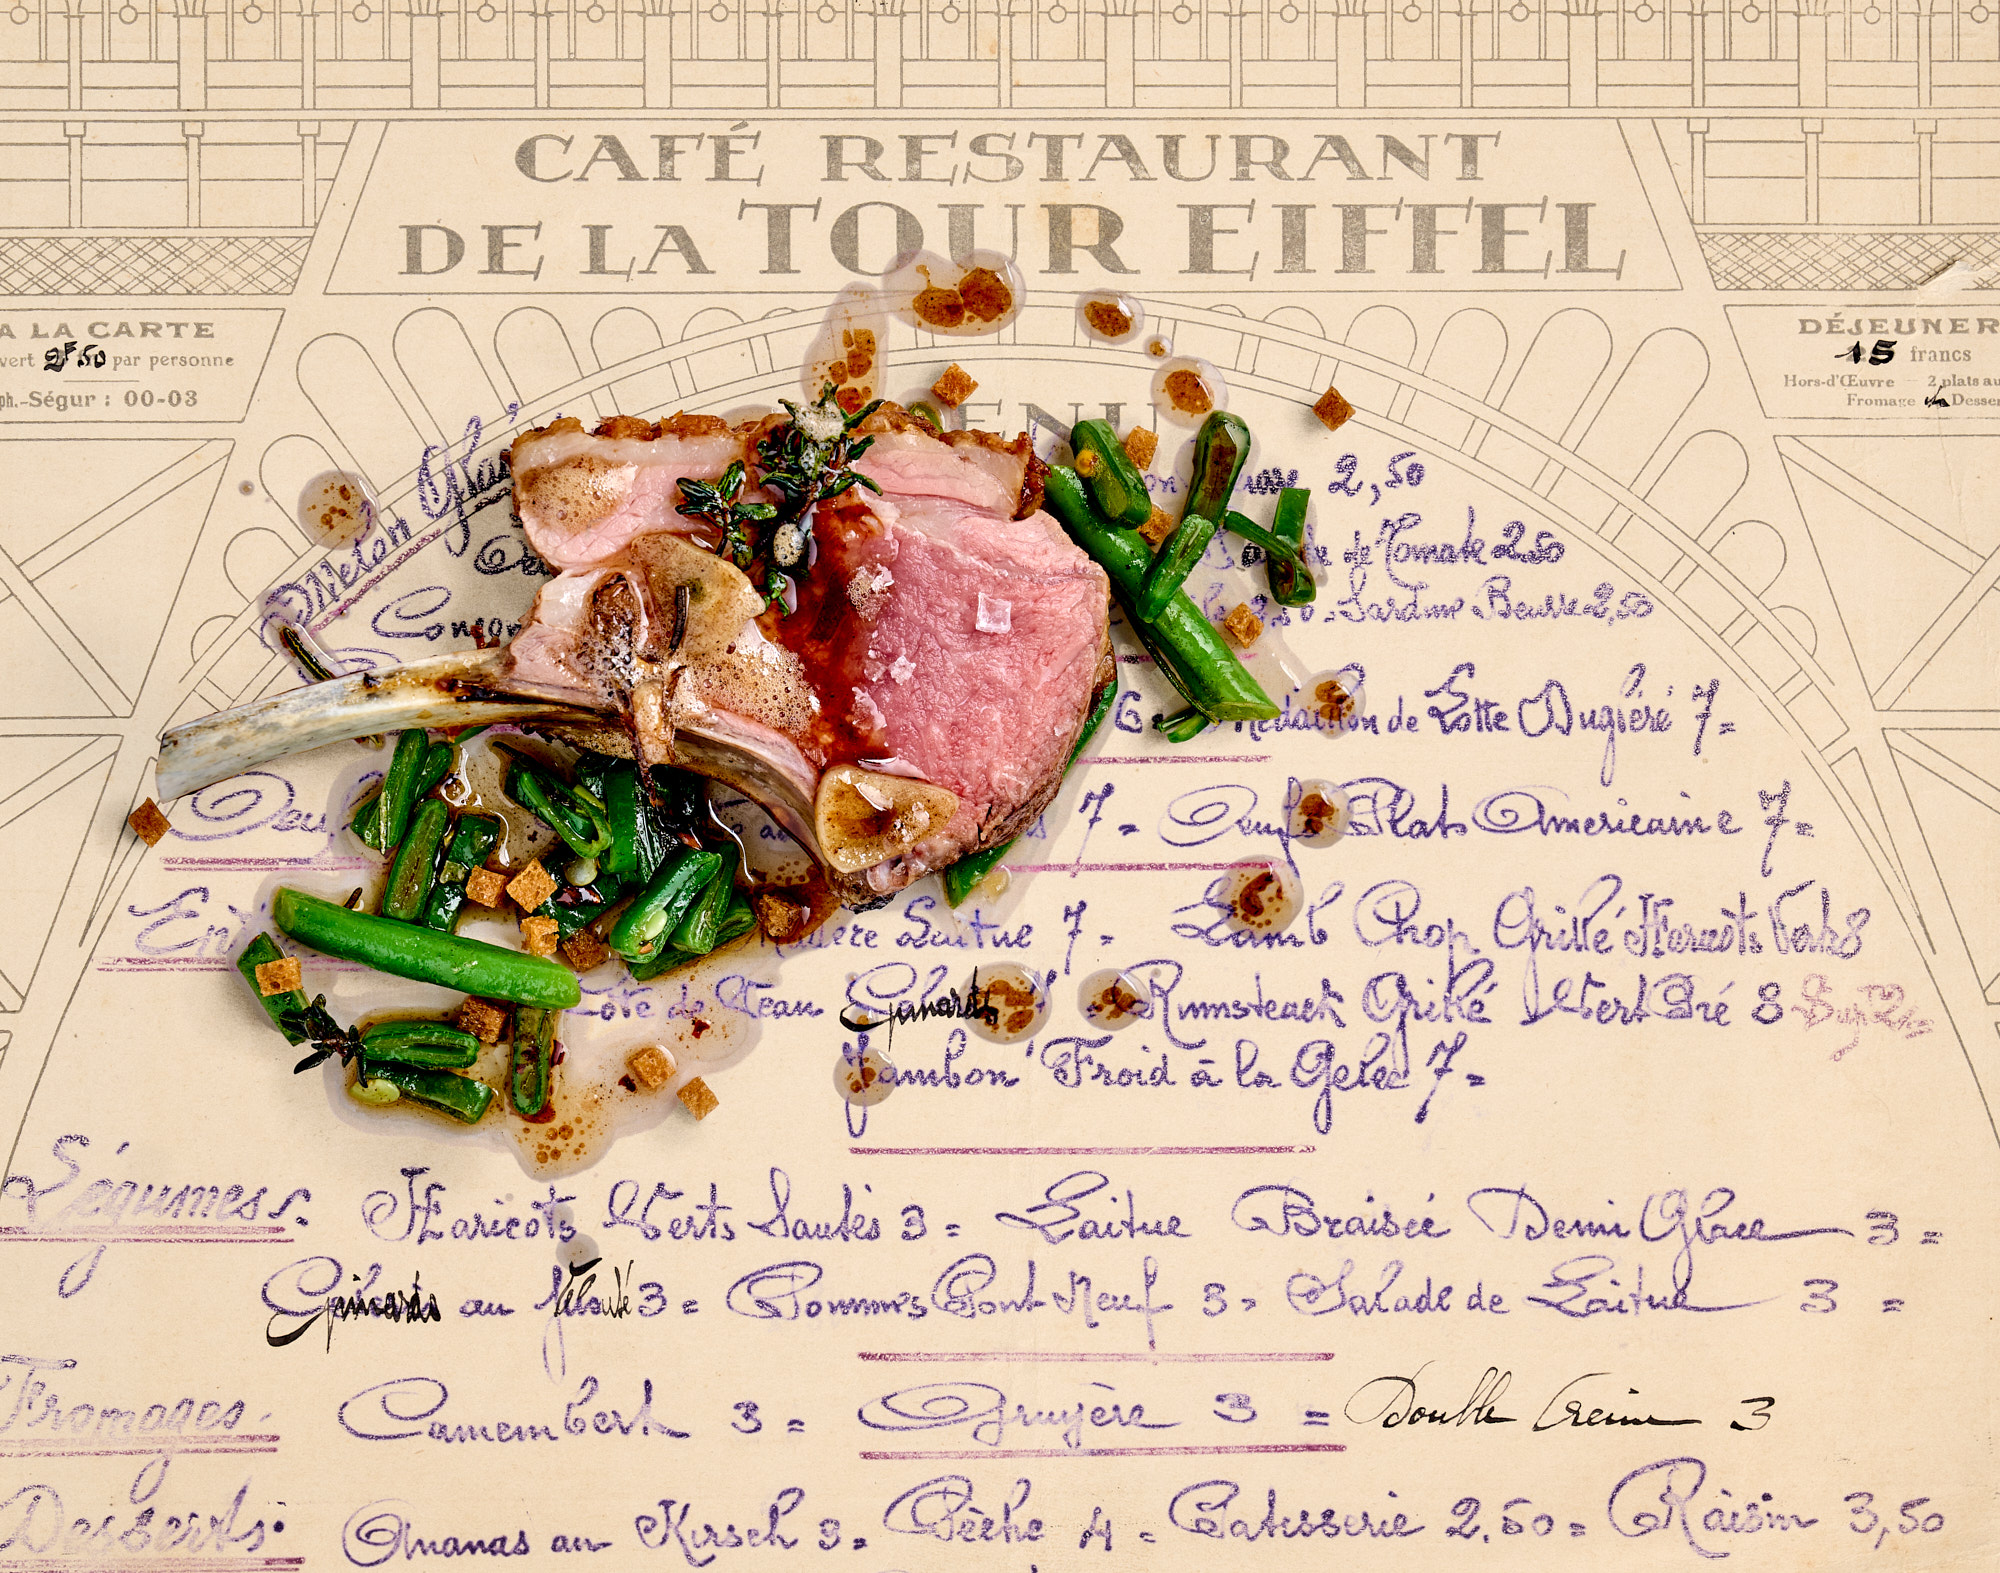 CAFÉ RESTAURANT
DE LA TOUR EIFFEL
A LA CARTE
vert 2F50 par personne
ph.-Ségur : 00-03
DÉJEUNER
15 francs
Hors-d'Œuvre — 2 plats au
Fromage Desser
ENU
Melon Gla
2,50
de Tomate 2,50
2,50 - Sardine Beurre 2,50
Médaillon de Lotte Dugléré 7 =
Oeuf 7 = Oeufs Plats Americaine 7 =
Madère Laitue 7 = Lamb Chop Grillé Haricots Verts 8
Côte de Veau Epinards 7 = Rumsteack Grillé Vert Pré 8
Jambon Froid à la Gelée 7 =
Légumes : Haricots Verts Sautés 3 = Laitue Braisée Demi Glace 3 =
Epinards au Velouté 3 = Pommes Pont Neuf 3 = Salade de Laitue 3 =
Fromages. Camembert 3 = Gruyère 3 = Double Crème 3
Desserts : Ananas au Kirsch 3 = Pêche 4 = Patisserie 2,50 = Raisin 3,50